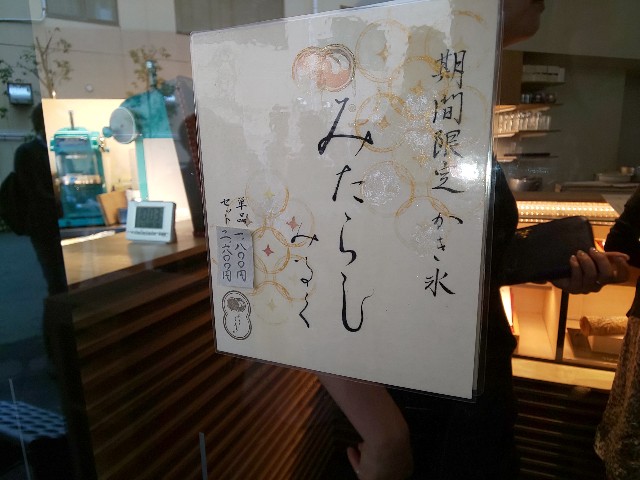 期間限定 かき氷
みたらし
みるく
単品 一、八〇〇円
セット 二、六〇〇円